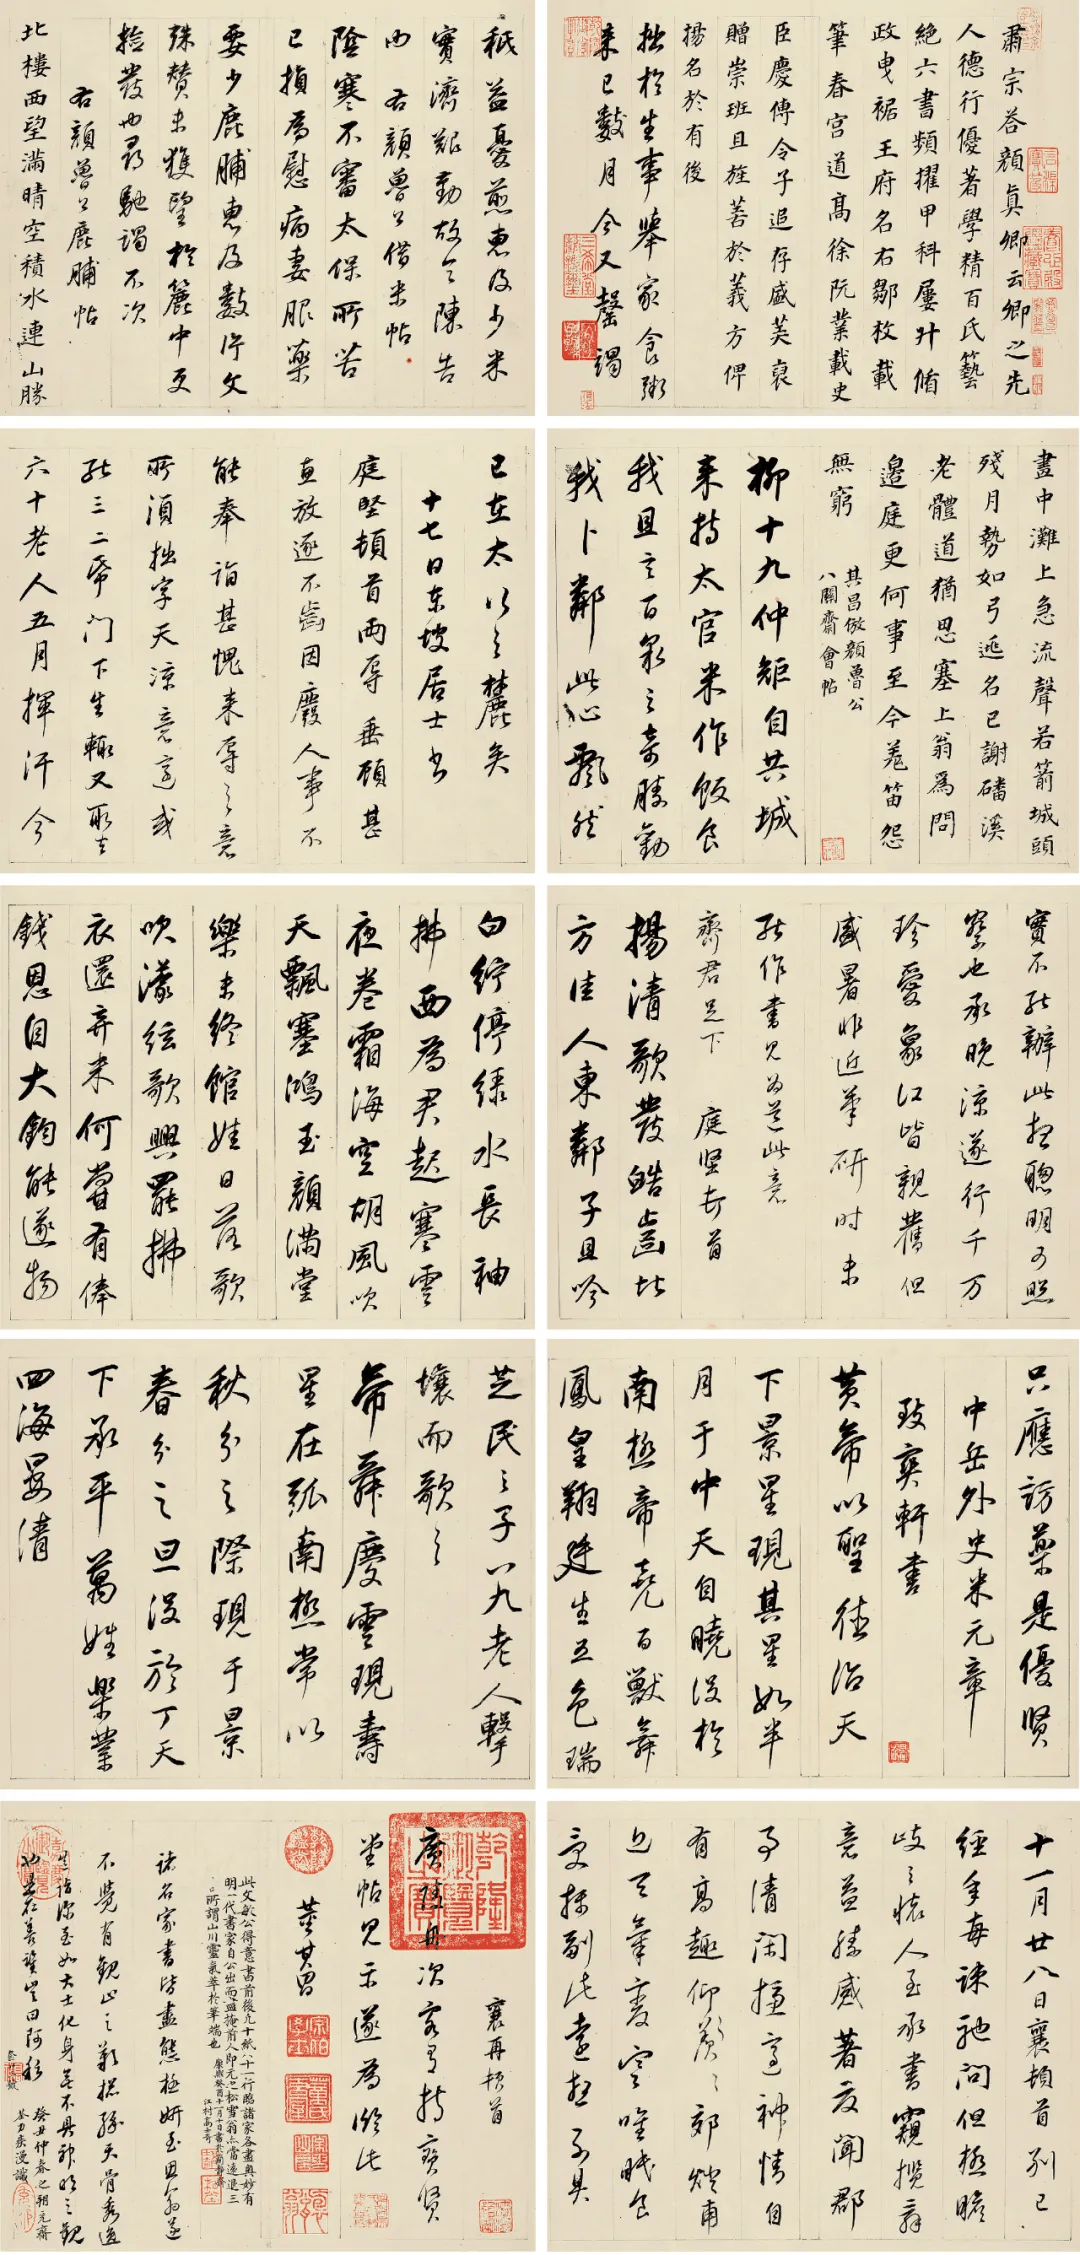 肅宗答顔真卿云卿之先
人德行優著學精百氏藝
絶六書頻擢甲科屢升循
政曳裾王府名右鄒枚載
筆春宮道高徐阮業載史
臣慶傳令子追存盛美褒
贈崇班且旌善於義方俾
揚名於有後
拙於生事舉家食粥
来已數月今又罄竭
秖益憂煎惠及少米
實濟艱勤故令陳告
右顔魯公借米帖
陰寒不審太保所苦
已損為慰病妻服藥
要少鹿脯惠及數片文
殊賛未獲望於簏中更
撿發也尋馳謁不次
右顔魯公鹿脯帖
北樓西望滿晴空積水連山勝
畫中灘上急流聲若箭城頭
殘月勢如弓逃名已謝磻溪
老體道猶思塞上翁為問
邊庭更何事至今羌笛怨
無窮
其昌倣顔魯公
八關齋會帖
柳十九仲矩自共城
来持太官米作飯食
我且言百泉之奇勝勸
我卜鄰此心飄然
已在太行之麓矣
十七日東坡居士書
庭堅頓首兩辱垂顧甚
惠放逐不齒因廢人事不
能奉詣甚愧来辱之意
所須拙字天凉意適或
能三二紙門下生輙又取去
六十老人五月揮汗今
實不能辦此想聰明可照
察也承晚凉遂行千万
珍愛象江皆親舊但
盛暑非近筆研時未
能作書見為道此意
齊君足下 庭堅頓首
揚清歌發皓齒北
方佳人東鄰子且吟
白紵停緑水長袖
拂西為君起寒雲
夜卷霜海空胡風吹
天飄塞鴻玉顔滿堂
樂未終館娃日落歌
吹濛絃歌興罷拂
衣還弃米何當有俸
錢恩自大鈞能遂物
只應訪藥是優賢
中岳外史米元章
致爽軒書
黄帝以聖徳治天
下景星現其星如半
月于中天自曉没於
南極帝堯百獸舞
鳳皇翔廷生五色瑞
芝民之子八九老人擊
壤而歌之
帝舜慶雲現壽
星在弧南極常以
秋分之際現于景
春分之旦没於丁天
下承平萬姓樂業
四海晏清
十一月廿八日襄頓首別已
經年每諫馳問但極瞻
歧之懷人至承書窺攬辭
意益感著友聞郡
事清閑神情自
有高趣仰羨
近天氣變寒唯眠食
副此遠想不具
襄再頓首
廣陵舟次客有持寶賢
堂帖見示遂為臨此
董其昌
此文敏公得意書前後九十紙八十一行臨諸家各盡奥妙有
明一代書家自公出而盡掩前人即元之松雪翁亦當遠退三
所謂山川靈氣萃於筆端也
康熙癸酉十一月十日書
江村高士奇
諸名家書皆盡態極妍至思翁遂
不覺有觀止之歎天骨秀逸
大士化身無不具
癸丑仲春之朔